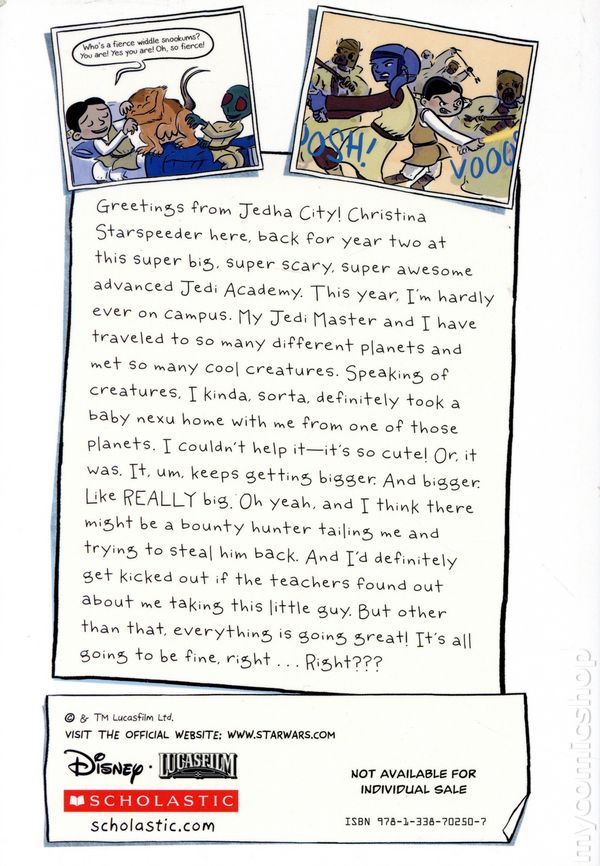 Who's a fierce widdle snookums?
You are! Yes you are! Oh, so fierce!
OSH!
VOOO
Greetings from Jedha City! Christina
Starspeeder here, back for year two at
this super big, super scary, super awesome
advanced Jedi Academy. This year, I'm hardly
ever on campus. My Jedi Master and I have
traveled to so many different planets and
met so many cool creatures. Speaking of
creatures, I kinda, sorta, definitely took a
baby nexu home with me from one of those
planets. I couldn't help it—it's so cute! Or, it
was. It, um, keeps getting bigger. And bigger.
Like REALLY big. Oh yeah, and I think there
might be a bounty hunter tailing me and
trying to steal him back. And I'd definitely
get kicked out if the teachers found out
about me taking this little guy. But other
than that, everything is going great! It's all
going to be fine, right . . . Right???
© & TM Lucasfilm Ltd.
VISIT THE OFFICIAL WEBSITE: WWW.STARWARS.COM
Disney · LUCASFILM
SCHOLASTIC
scholastic.com
NOT AVAILABLE FOR
INDIVIDUAL SALE
ISBN 978-1-338-70250-7
mycomicshop